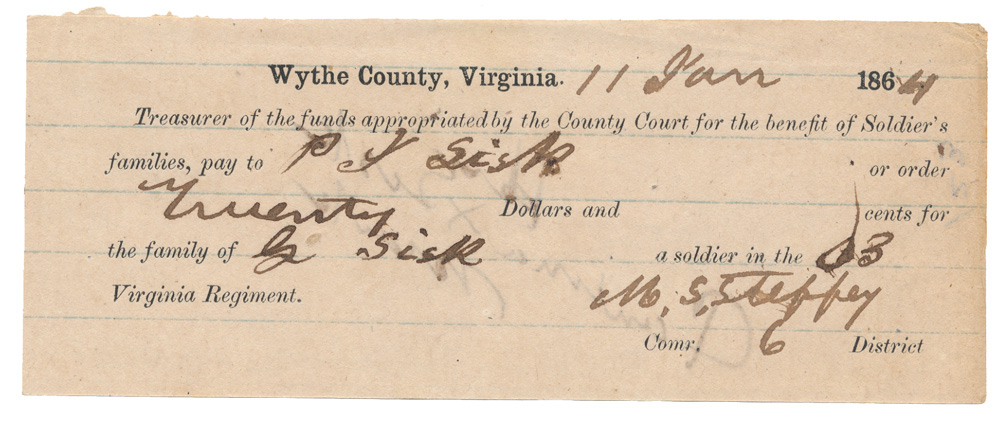 Wythe County, Virginia. 11 Jan 1864
Treasurer of the funds appropriated by the County Court for the benefit of Soldier's
families, pay to P J Sisk or order
Twenty Dollars and cents for
the family of G Sisk a soldier in the 63
Virginia Regiment. M. S. Steffey
Comr. 6 District